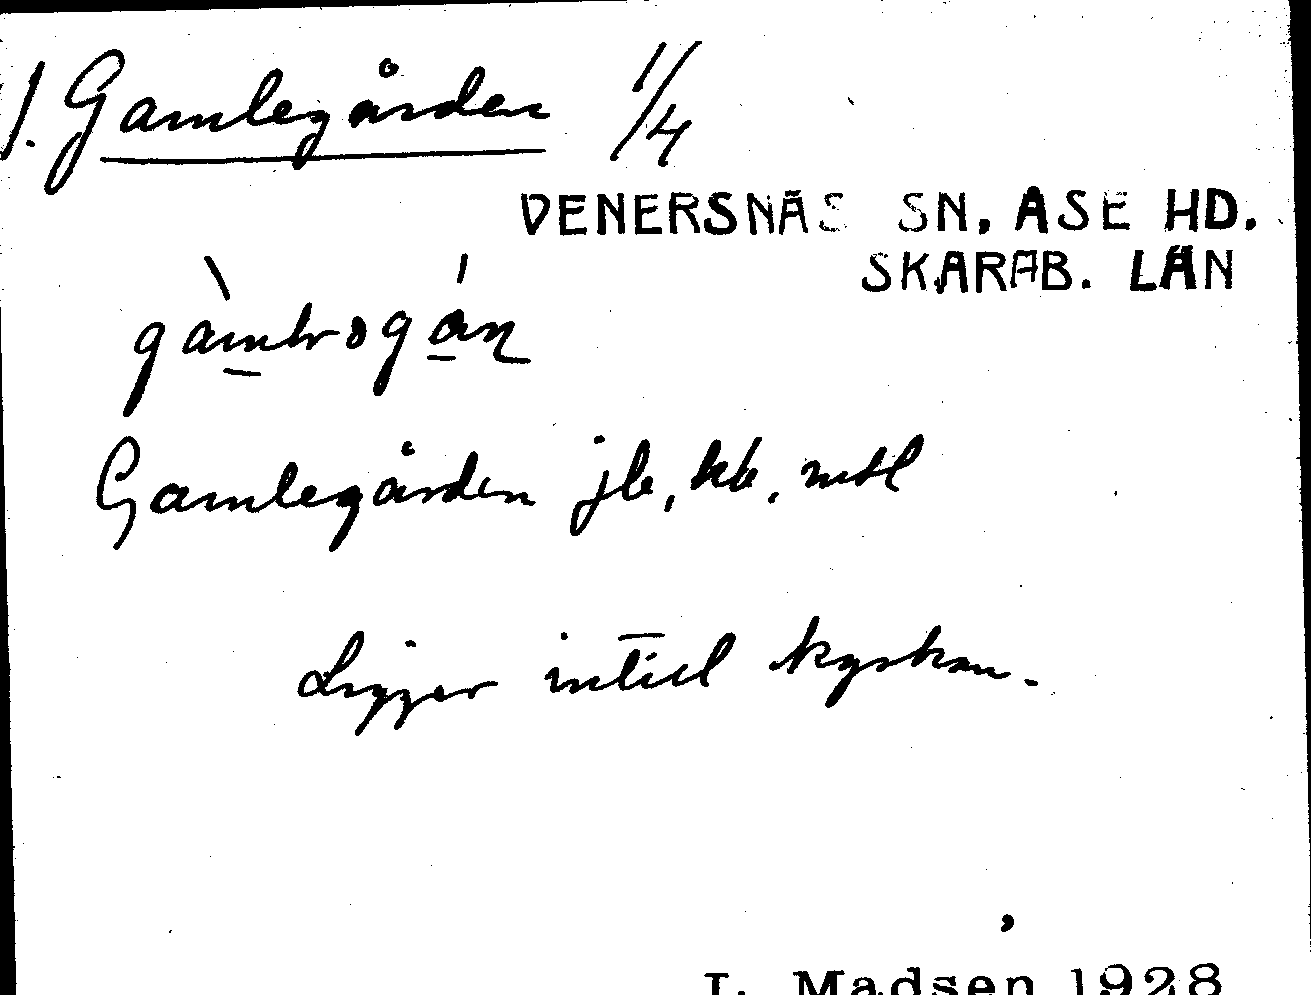 1. Gamlegården 1/4
VENERSNÄS SN, ASE HD.
SKARAB. LÄN
Gamlegården jb, kb, mtl
Ligger intill kyrkan.
I. Madsen 1928